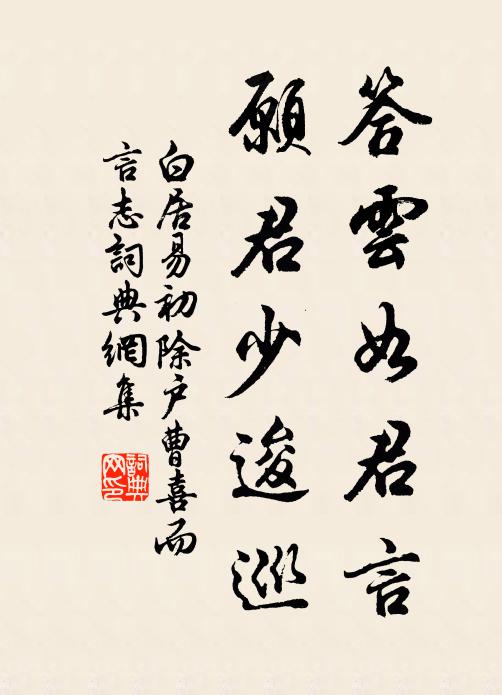 答雲如君言
願君少逡巡
白居易初除户曹喜而
言志詞典網集
詞典網印